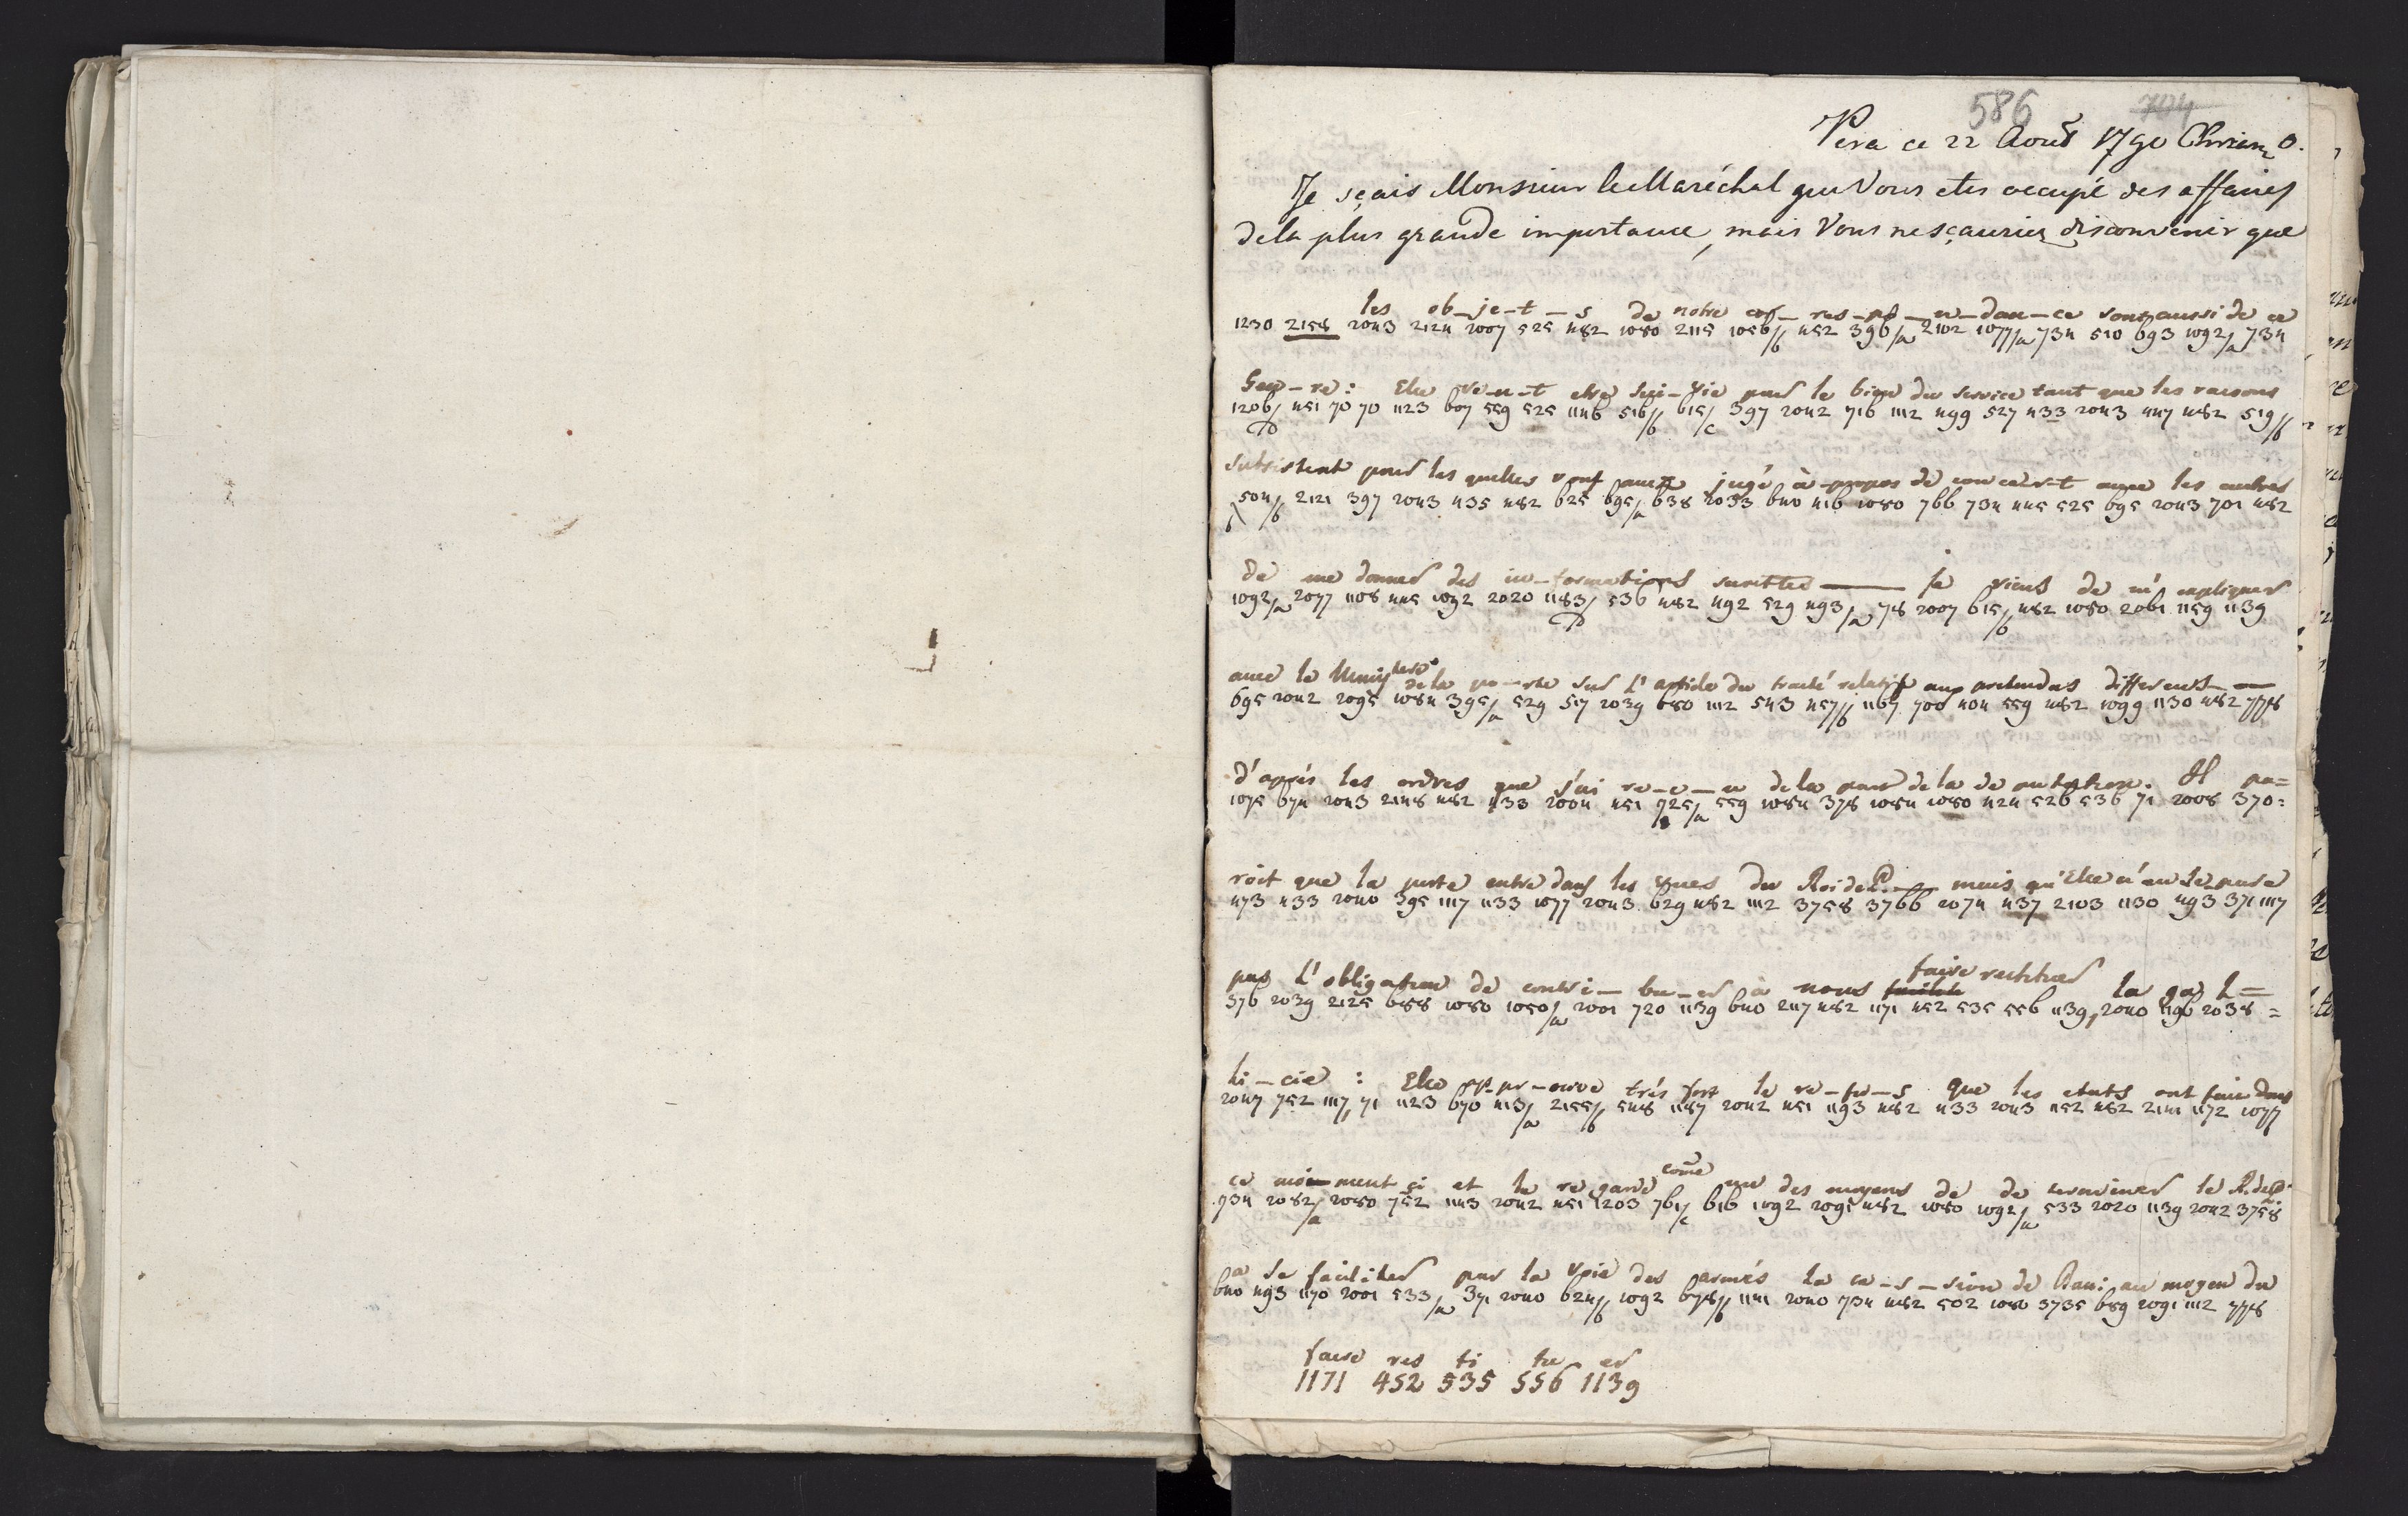 586 704
Pera ce 22 Aout 1790
Je sçais Monsieur le Maréchal que Vous etes occupé des affaires
de la plus grande importance, mais Vous ne sçauriez disconvenir que
les ob-je-t-s de notre cor-res-po-n-dan-ce sont aussi de ce
1230 2158 2043 2124 2007 525 482 1080 2115 1056/b 452 396/a 2102 1077/a 734 510 693 1092/a 734
Gen-re: Elle ve-u-t etre sui-vie pour le bien du service tant que les raisons
1206/D 451 70 70 1123 607 559 525 1146 516/b 615/c 397 2042 716 1112 499 527 433 2043 447 482 519/b
subsistent pour les quelles vous avez jugé à-propos de concer-t avec les autres
504/b 2121 397 2043 435 482 625 695/a 638 2033 640 416 1080 766 734 445 525 695 2043 701 482
de me donner des in-formations suivittes je viens de m'expliquer
1092/a 2077 1108 445 1092 2020 1183/D 536 482 492 529 493/a 78 2007 615/b 482 1080 2061 1159 1139
avec le Ministere de la po-rte sur l'article du traité relatif aux pretendus differens
695 2042 2095 1084 395/a 529 517 2039 680 1112 543 457/b 1167 700 404 559 482 1099 1130 482 778
d'après les ordres que j'ai re-c-u de la part de la de putation. Il pa=
1075 674 2043 2148 482 433 2004 451 725/a 559 1084 378 1084 1080 424 526 536 71 2008 370:
roit que la porte entre dans les vues du Roi de P. mais qu'Elle n'en se pare
473 433 2040 395 1117 1133 1077 2043 629 482 1112 3758 3766 2074 437 2103 1130 493 371 1117
pas l'obligation de contri-bu-er à nous faire restituer la ga l=
376 2039 2125 688 1080 1050/a 2001 720 1139 640 2117 482 1171 452 535 556 1139, 2040 1196 2038 =
li-cie : Elle ap-pr-ouve très fort le re-fu-s que les etats ont fait dans
2047 752 1117, 71 1123 670 413/a 2155/b 548 1187 2042 451 1193 482 433 2043 1152 482 2141 1172 1077
ce moment ci et le regarde come un des moyens de de terminer le R. de P.
734 2082/a 2080 752 1143 2042 451 1203 761/c 616 1092 2091 482 1080 1092/a 533 2020 1139 2042 3758
a se faciliter par la voie des armés la ce-s-sion de au moyen du
640 493 1170 2001 533/a 371 2040 624/b 1092 678/b 1141 2040 734 482 502 1080 3735 689 2091 1112 778
faire res ti tu er
1171 452 535 556 1139